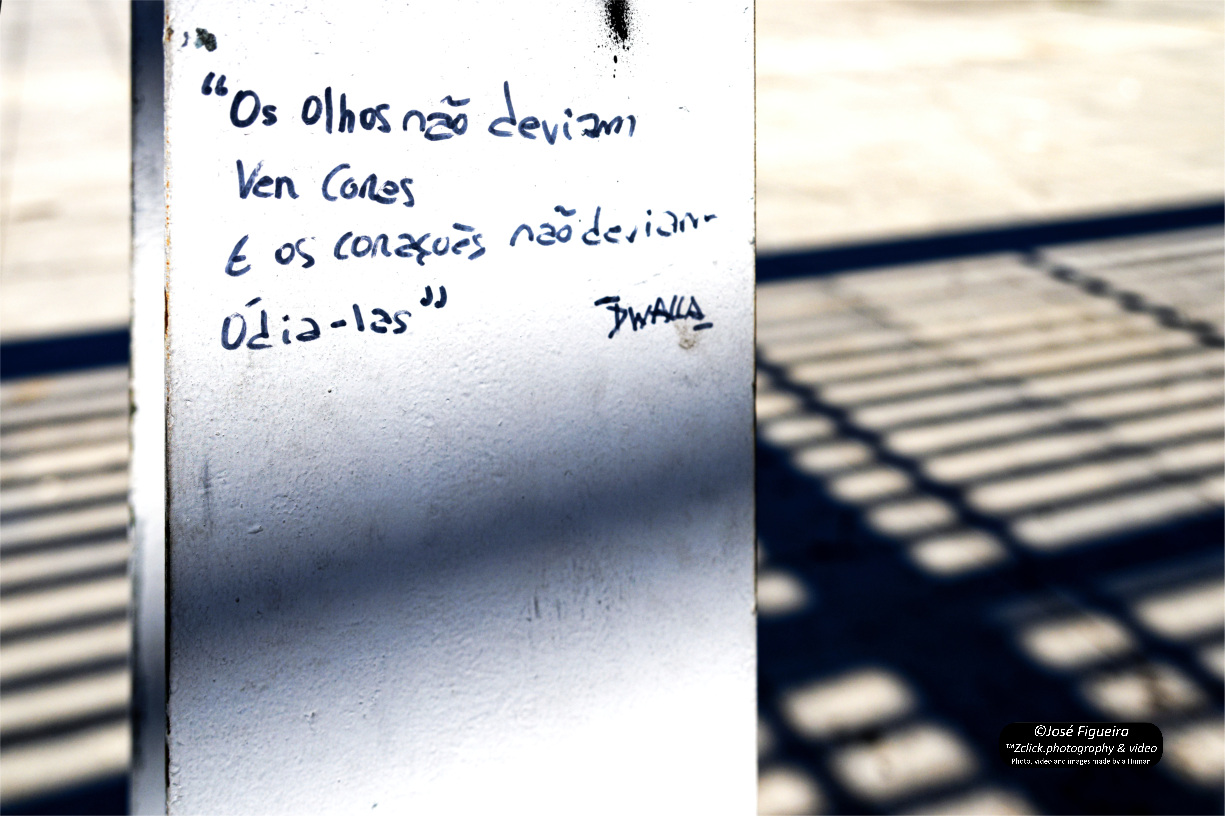 “Os olhos não deviam
Ver Cores
E os corações não deviam
Ódia-las”
DWALLA
©José Figueira
™Zclick.photography & video
Photo, video and images made by a Human